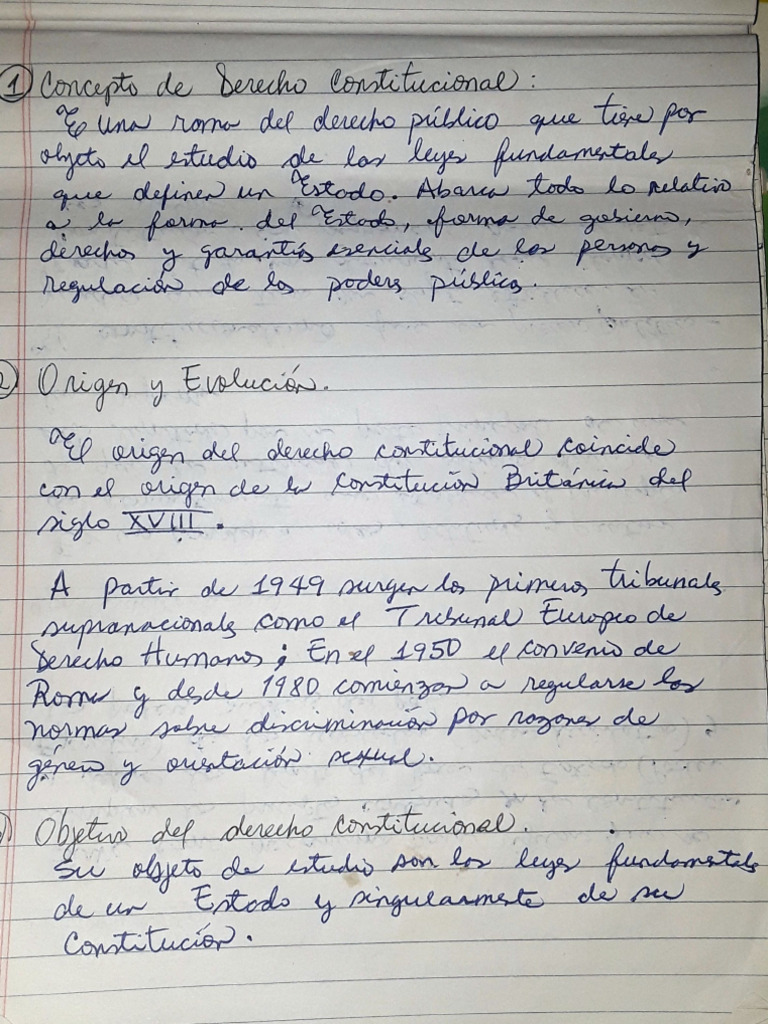 1 Concepto de Derecho Constitucional:
Es una rama del derecho público que tiene por
objeto el estudio de las leyes fundamentales
que definen un Estado. Abarca todo lo relativo
a la forma del Estado, forma de gobierno,
derechos y garantías esenciales de las personas y
regulación de los poderes públicos.
2) Origen y Evolución.
El origen del derecho constitucional coincide
con el origen de la Constitución Británica del
siglo XVIII.
A partir de 1949 surgen los primeros tribunales
supranacionales como el Tribunal Europeo de
Derecho Humanos; En el 1950 el convenio de
Roma y desde 1980 comienzan a regularse las
normas sobre discriminación por razones de
género y orientación sexual.
Objetivo del derecho constitucional.
Su objeto de estudio son las leyes fundamentales
de un Estado y singularmente de su
Constitución.